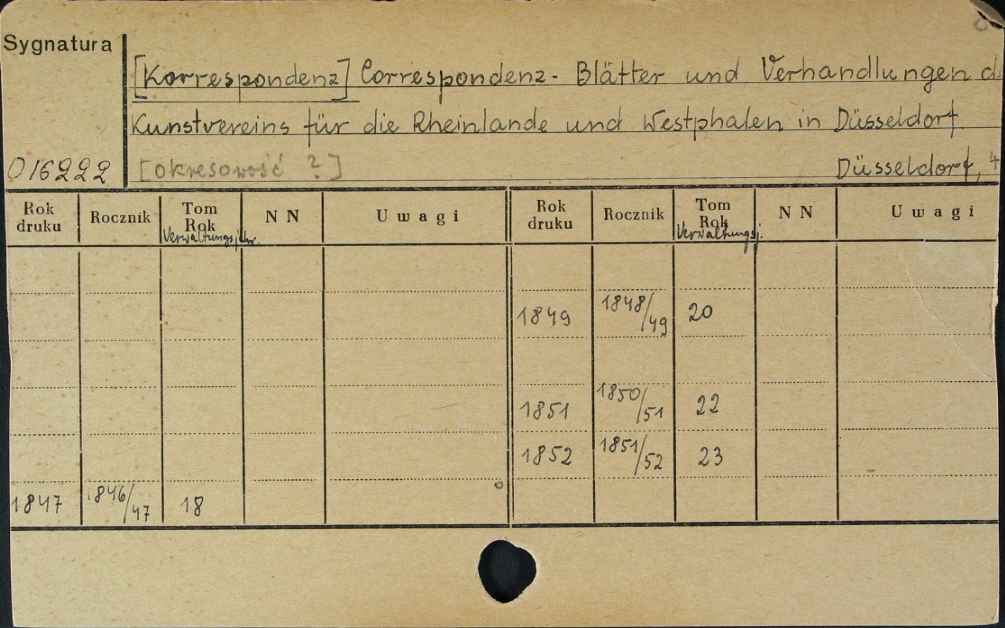 Sygnatura
[Korrespondenz] Correspondenz- Blätter und Verhandlungen d
Kunstvereins für die Rheinlande und Westphalen in Düsseldorf.
016222 [okresowość ?] Düsseldorf, 4
Rok druku Rocznik Tom Rok Verwaltungsjhr. NN Uwagi Rok druku Rocznik Tom Rok Verwaltungsj. NN Uwagi
1849 1848/49 20
1851 1850/51 22
1852 1851/52 23
1847 1846/47 18